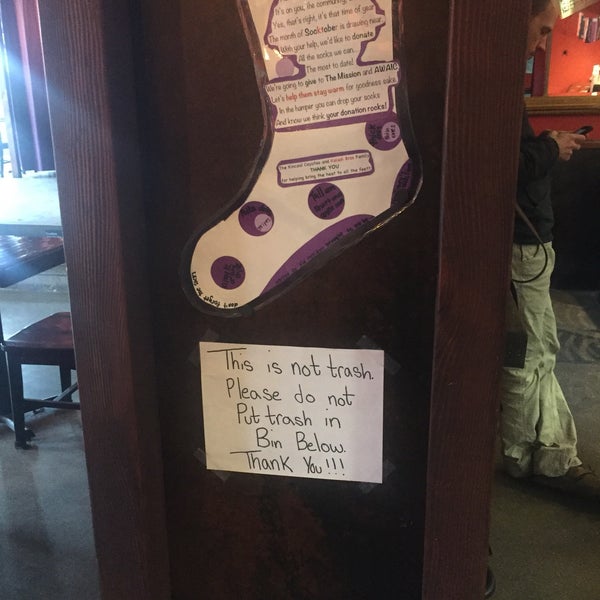 It's on you, the community,
Yes, that's right, it's that time of year
The month of Socktober is drawing near.
With your help, we'd like to donate
All the socks we can.
The most to date!
We're going to give to The Mission and AWAIC
Let's help them stay warm for goodness sake.
In the hamper you can drop your socks
And know we think your donation rocks!
The Kincaid Coyotes and Kaladi Bros Family
THANK YOU
for helping bring the heat to all the feet!
This is not trash.
Please do not
Put trash in
Bin Below.
Thank You!!!